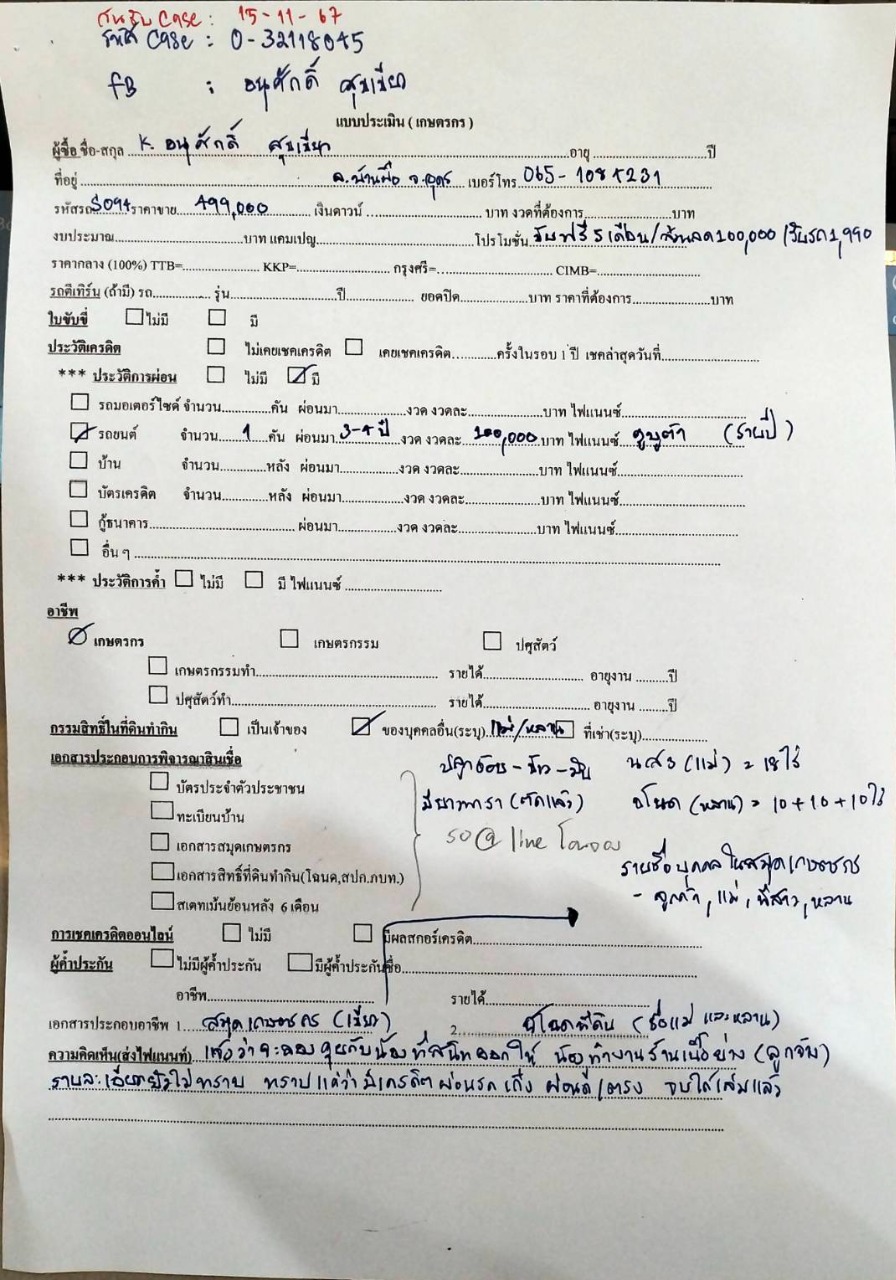 วันรับ Case : 15-11-67
รหัส Case : 0-32118045
FB : อนุศักดิ์ สุขเขียว
แบบประเมิน ( เกษตรกร )
ผู้ซื้อ ชื่อ-สกุล K. อนุศักดิ์ อายุ ปี
ที่อยู่ อ.บ้านผือ จ.อุดร เบอร์โทร
รหัสรถ ราคาขาย 499,000 เงินดาวน์ บาท งวดที่ต้องการ บาท
งบประมาณ บาท แคมเปญ โปรโมชั่น ขับฟรี 5 เดือน/ส่วนลด 100,000 /
ราคากลาง (100%) TTB= KKP= กรุงศรี= CIMB=
รถตีเทิร์น (ถ้ามี) รถ รุ่น ปี ยอดปิด บาท ราคาที่ต้องการ บาท
ใบขับขี่ ไม่มี มี
ประวัติเครดิต ไม่เคยเชคเครดิต เคยเชคเครดิต ครั้งในรอบ 1 ปี เชคล่าสุดวันที่
*** ประวัติการผ่อน ไม่มี มี
รถมอเตอร์ไซค์ จำนวน คัน ผ่อนมา งวด งวดละ บาท ไฟแนนซ์
รถยนต์ จำนวน 1 คัน ผ่อนมา 3-4 ปี งวด งวดละ 100,000 บาท ไฟแนนซ์ คูโบต้า (รายปี)
บ้าน จำนวน หลัง ผ่อนมา งวด งวดละ บาท ไฟแนนซ์
บัตรเครดิต จำนวน หลัง ผ่อนมา งวด งวดละ บาท ไฟแนนซ์
กู้ธนาคาร ผ่อนมา งวด งวดละ บาท ไฟแนนซ์
อื่น ๆ
*** ประวัติการค้ำ ไม่มี มี ไฟแนนซ์
อาชีพ
เกษตรกร เกษตรกรรม ปศุสัตว์
เกษตรกรรมทำ รายได้ อายุงาน ปี
ปศุสัตว์ทำ รายได้ อายุงาน ปี
กรรมสิทธิ์ในที่ดินทำกิน เป็นเจ้าของ ของบุคคลอื่น(ระบุ) แม่/หลาน ที่เช่า(ระบุ)
เอกสารประกอบการพิจารณาสินเชื่อ
ปลูกอ้อย - ข้าว - มัน นส3 (แม่) = 18 ไร่
บัตรประจำตัวประชาชน
มียางพารา (ตัดแล้ว) โฉนด (หลาน) = 10+10+10 ไร่
ทะเบียนบ้าน
เอกสารสมุดเกษตรกร
รายชื่อบุคคลในสมุดเกษตรกร
เอกสารสิทธิ์ที่ดินทำกิน(โฉนด,สปก.ภบท.)
- ลูกค้า, แม่, พี่สาว, หลาน
สเตทเม้นย้อนหลัง 6 เดือน
การเชคเครดิตออนไลน์ ไม่มี มีผลสกอร์เครดิต
ผู้ค้ำประกัน ไม่มีผู้ค้ำประกัน มีผู้ค้ำประกันชื่อ
อาชีพ รายได้
เอกสารประกอบอาชีพ 1. สมุดเกษตรกร (เขียว) 2. มีโฉนดที่ดิน (ชื่อแม่ และหลาน)
ความคิดเห็น(ส่งไฟแนนท์) แจ้งว่าจะลองคุยกับน้องที่สนิทออกให้ น้องทำงานร้านเนื้อย่าง (ลูกจ้าง)
รายละเอียดยังไม่ทราบ ทราบแค่ว่ามีเครดิตผ่อนรถเก๋ง ผ่อนดี/ตรง จบได้เล่มแล้ว